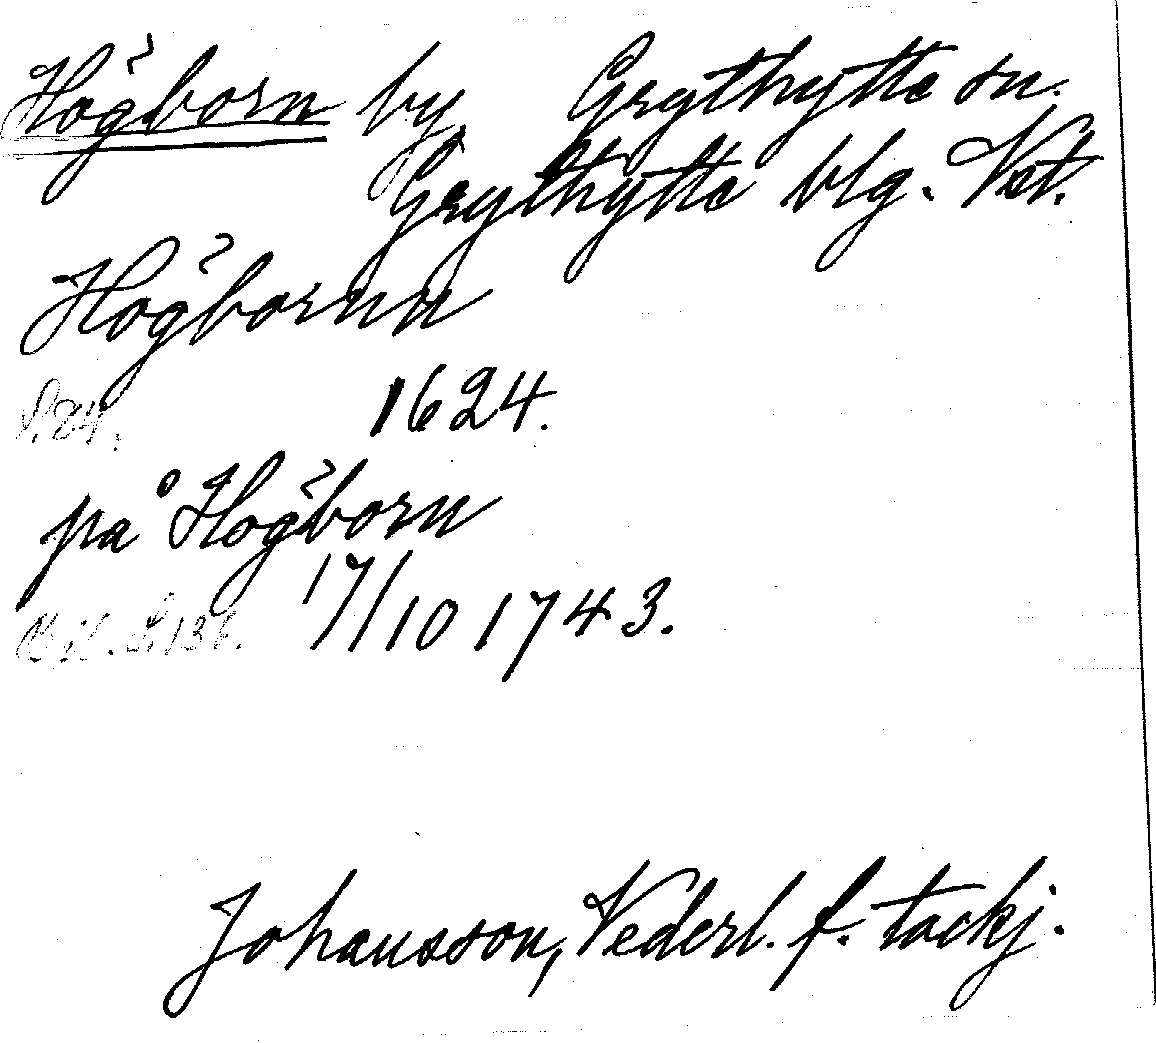 Högborn by Grythytte sn.
Grythytte blg. Vst.
Högbornn
S. 84. 1624.
på Högborn
Bil. S. 136. 17/10 1743.
Johansson, Vederl. f. tackj.